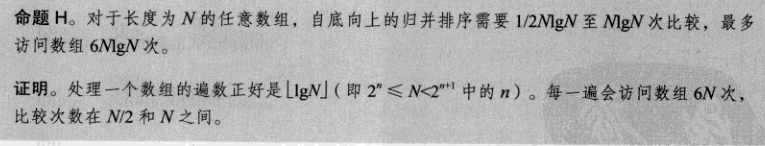 命题 H。对于长度为 N 的任意数组，自底向上的归并排序需要 1/2NlgN 至 NlgN 次比较，最多
访问数组 6NlgN 次。
证明。处理一个数组的遍数正好是⌊lgN⌋（即 2ⁿ ≤ N<2ⁿ⁺¹ 中的 n）。每一遍会访问数组 6N 次，
比较次数在 N/2 和 N 之间。